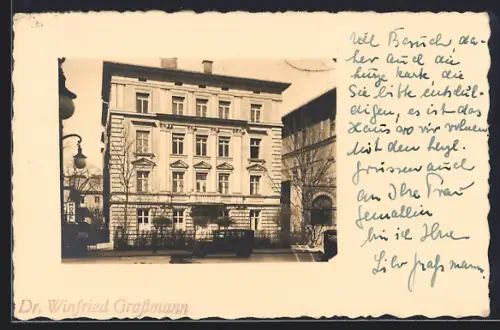 viel Besuch, da-
her auch die
kurze Karte, die
Sie bitte entschul-
digen, es ist das
Haus wo wir wohnen
Mit den herzl.
Grüssen auch
an Ihre Frau
Gemahlin
bin ich Ihre
Graßmann.
Dr. Winfried Graßmann